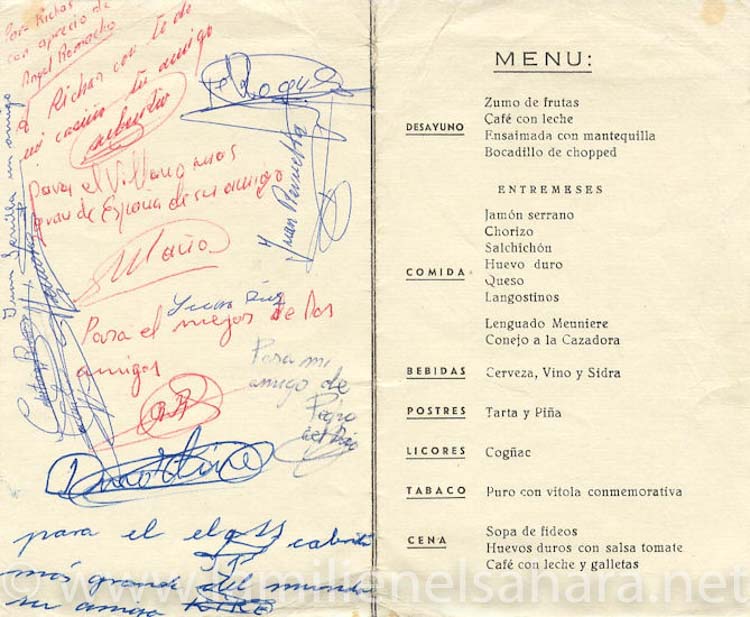 Para Richar
con aprecio de
Angel Remacho
A Richar con todo
mi cariño tu amigo
Para el Villano mas
gran de España de su amigo
Maño
Juan Sevilla un amigo
Juan
Juan
Para el mejor de los
amigos
Para mi
amigo de
Pedro
del Rio
Martinez
para el cabrito
más grande del mundo
su amigo KIKE
MENU:
DESAYUNO
Zumo de frutas
Café con leche
Ensaimada con mantequilla
Bocadillo de chopped
ENTREMESES
COMIDA
Jamón serrano
Chorizo
Salchichón
Huevo duro
Queso
Langostinos
Lenguado Meuniere
Conejo a la Cazadora
BEBIDAS Cerveza, Vino y Sidra
POSTRES Tarta y Piña
LICORES Cogñac
TABACO Puro con vitola conmemorativa
CENA
Sopa de fideos
Huevos duros con salsa tomate
Café con leche y galletas
© www.lamilienelsahara.net